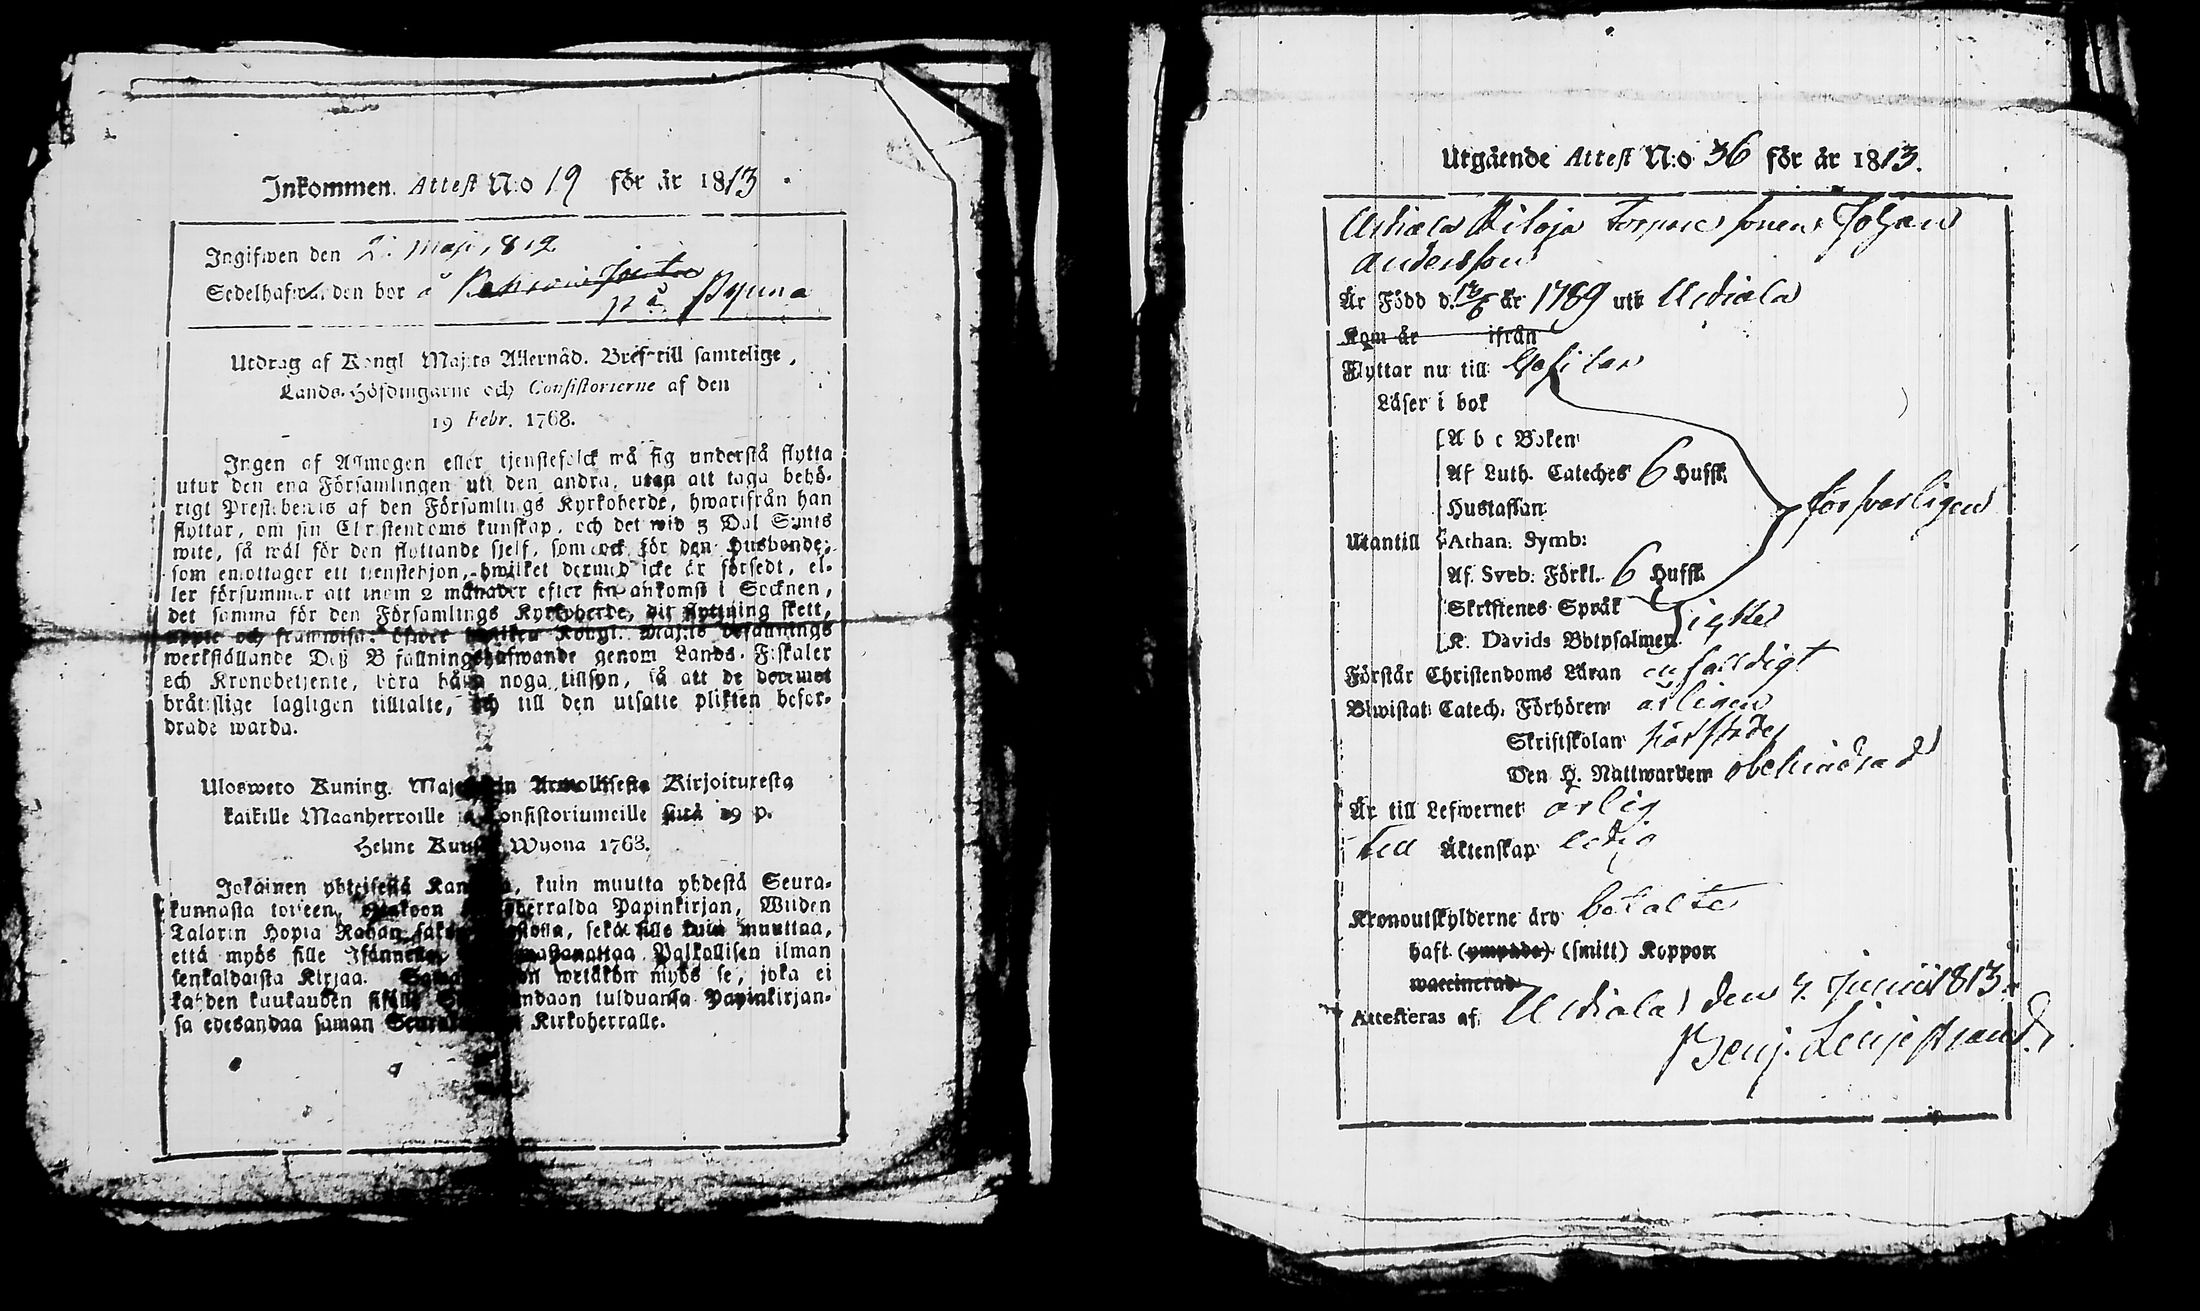 Inkommen. Attest N:o 19 för år 1813.
Ingifwen den 2. Maji 1812
Sedelhafwanden bor å
på Pyuna
Utdrag af Kongl Maj:ts Allernåd. Bref till samtelige
Lands-Höfdingarne och Consistorierne af den
19 Febr. 1768.
Ingen af Allmogen eller tjenstefolck må sig understå flytta
utur den ena Församlingen uti den andra, utan att taga behö-
rigt Prestebewis af den Församlings Kyrkoherde, hwarifrån han
flyttar, om sin Christendoms kunskap, och det wid 3 Dal S:mts
wite, så wäl för den flyttande sjelf, som ock för den Husbonde,
som emottager ett tjenstehjon, hwilket dermed icke är försedt, el-
ler försummar att inom 2 månader efter sin ankomst i Socknen,
det samma för den Församlings Kyrkoherde, dit flyttning skett,
uppte och framwisa: öfwer hwilken Kongl. Maj:ts Befallnings
werkställande Deß Befallningshafwande genom Lands-Fiskaler
och Kronobetjente, böra hafwa noga tillsyn, så att de deremot
bråtslige lagligen tilltalte, och till den utsatte plikten befor-
drade warda.
Ulosweto Kuning. Majestetin Armollisesta Kirjoituxesta
kaikille Maanherroille ja Consistoriumeille siitä 19 p.
Helme Kuusa Wuona 1768.
Jokainen yhteisestä Kansasta, kuin muutta yhdestä Seura-
kunnasta toiseen, ottakoon Kirkoherralda Papinkirjan, Wiiden
Talarin Hopia Rahan sakon uhalla, sekä sille kuin muuttaa,
että myös sille Isännelle, wastanottaa Palkollisen ilman
senkaldaista Kirjaa. Saman sakon wetäkön myös se, joka ei
kahden kuukauden sisällä Seurakundaan tulduansa Papinkirjan-
sa edesandaa saman Seurakunnan Kirkoherralle.
Utgående Attest N:o 36 för år 1813.
Urdiala Kiloja Torpare sonen Johan
Andersson
Är Född d. 13/6 år 1789 uti Urdiala
Kom år ifrån
Flyttar nu till
Läser i bok
A b c Boken
Af Luth. Cateches 6 Hufst.
Hustaflan
försvarligen
Utantill Athan. Symb:
Af. Sveb. Förkl. 6 Hufst.
Skriftenes Språk
K. Davids Botpsalmer. icke
Förstår Christendoms Läran enfalldigt
Biwistat Catech. Förhören årligen
Skriftskolan
Den H. Nattwarden obehindrad
Är till Lefwernet ärlig
Till Äktenskap ledig
Kronoutskylderne äro betalte
haft (ympade) (smitt) Koppor
waccinerad
Attesteras af: Urdiala den 4. Junii 1813.
Benj. Lenjestrand.